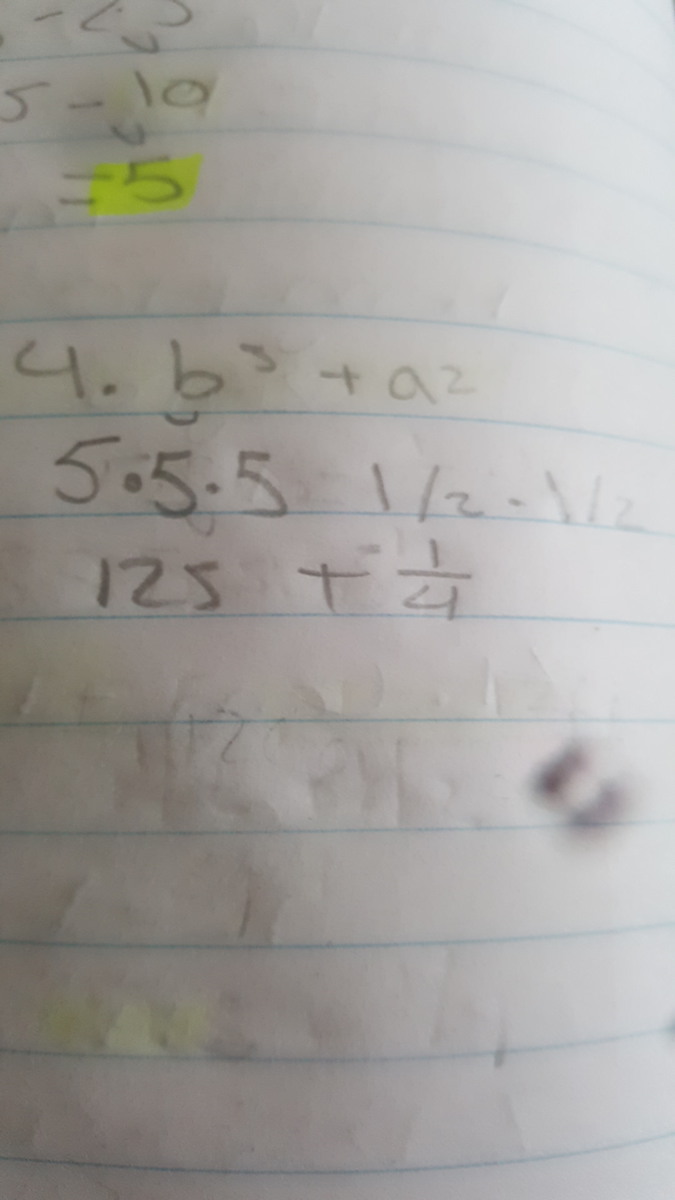 5 - 10
= 5
4. b³ + a2
5·5·5 1/2 · 1/2
125 + 1/4